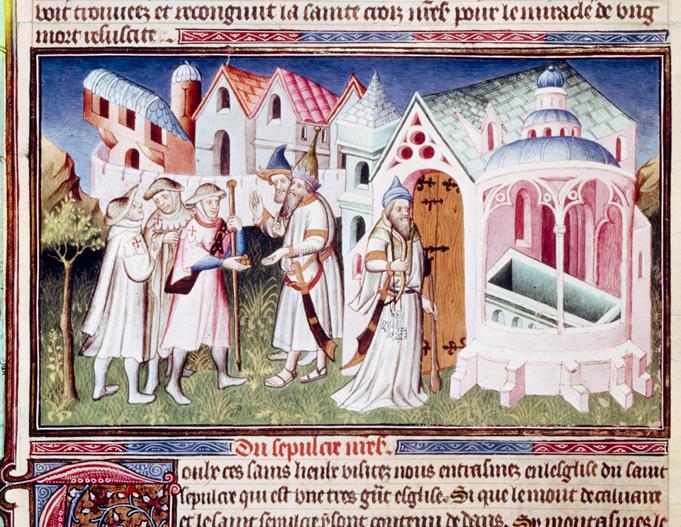 voit trouueez et recongnut la sainte croiz nr̃e s̃ pour le miracle de vng
mort resuscite.
Du sepulcre nr̃e s̃.
oultre ces sains lieux visitez nous entrasmez en leglise du saint
sepulcre qui est vne tres gñt esglise. Si que le mont de caluaire
et le saint sepulcre y sont contenu dedans. Si monta smes le